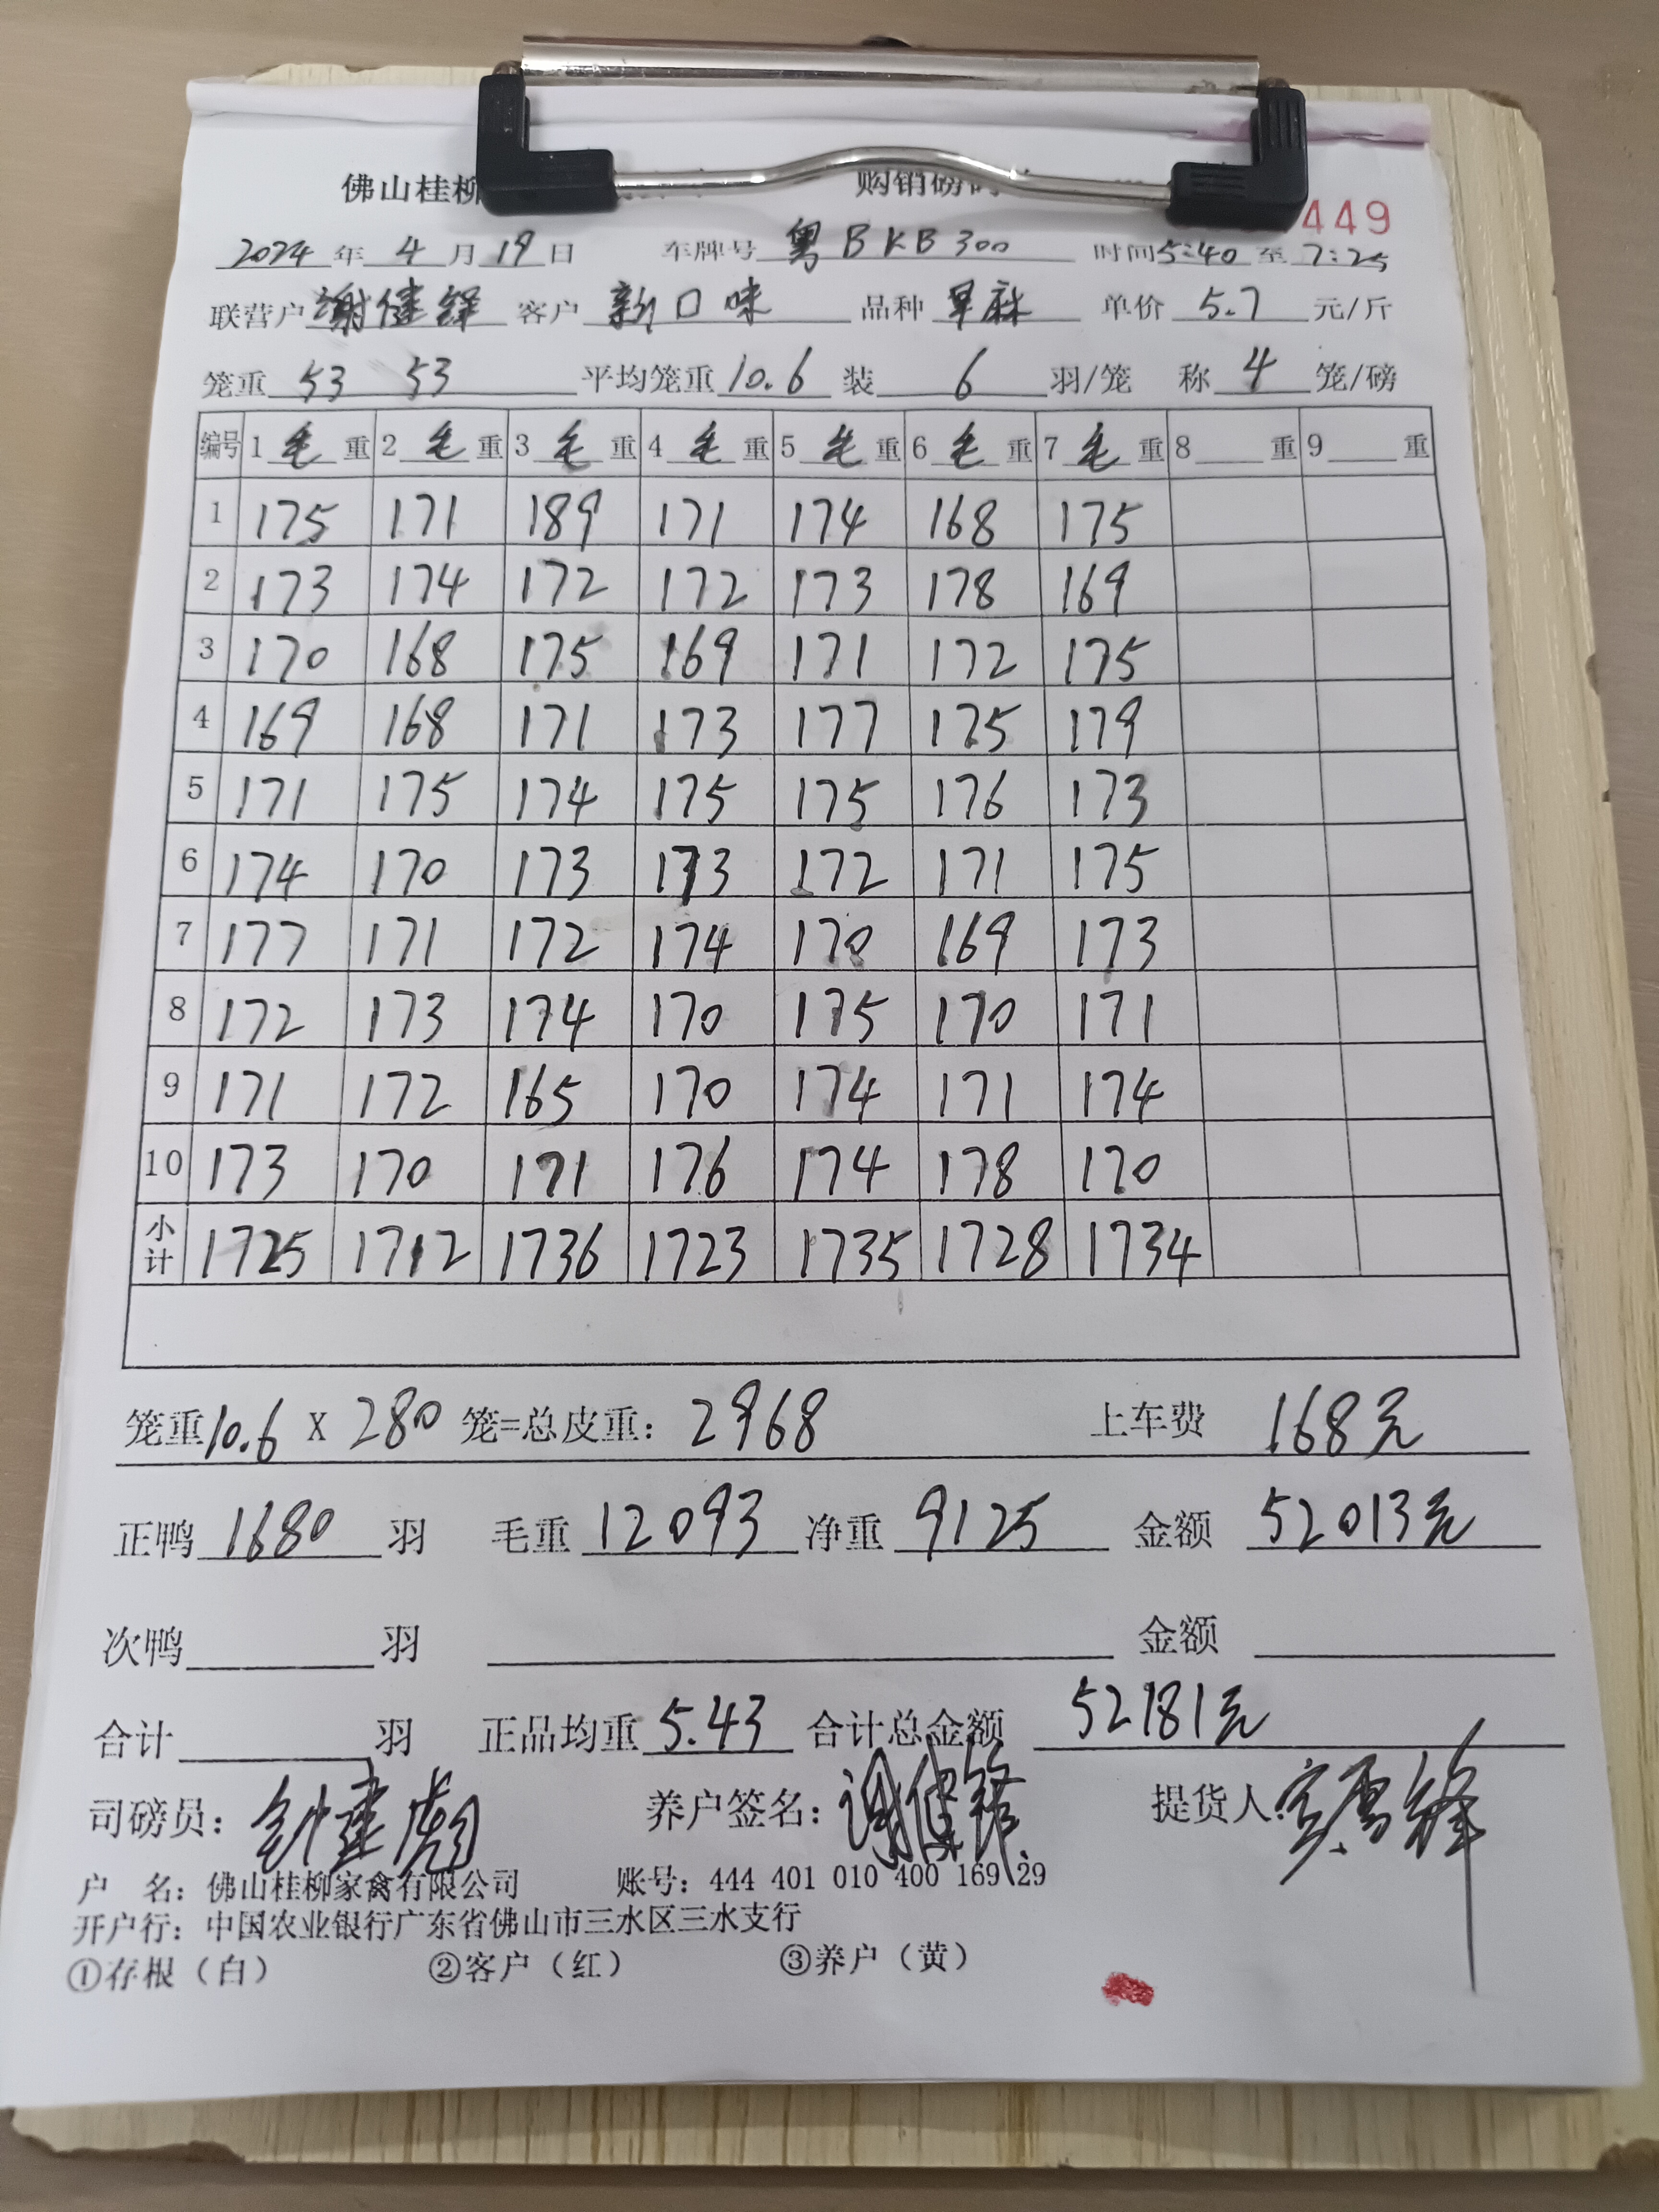 佛山桂柳 购销磅码 449
2024年 4月19日 车牌号 粤BKB300 时间5:40至7:25
联营户 谢健锋 客户 新口味 品种 旱麻 单价 5.7 元/斤
笼重 53 53 平均笼重 10.6 装 6 羽/笼 称 4 笼/磅
编号 1毛重 2毛重 3毛重 4毛重 5毛重 6毛重 7毛重 8 重 9 重
1 175 171 189 171 174 168 175
2 173 174 172 172 173 178 169
3 170 168 175 169 171 172 175
4 169 168 171 173 177 175 179
5 171 175 174 175 175 176 173
6 174 170 173 173 172 171 175
7 177 171 172 174 170 169 173
8 172 173 174 170 175 170 171
9 171 172 165 170 174 171 174
10 173 170 171 176 174 178 170
小计 1725 1712 1736 1723 1735 1728 1734
笼重10.6 X 280 笼=总皮重: 2968 上车费 168元
正鸭 1680 羽 毛重 12093 净重 9125 金额 52013元
次鸭 羽 金额
合计 羽 正品均重 5.43 合计总金额 52181元
司磅员: 养户签名: 谢健锋 提货人:
户 名: 佛山桂柳家禽有限公司 账号: 444 401 010 400 169 29
开户行: 中国农业银行广东省佛山市三水区三水支行
①存根（白） ②客户（红） ③养户（黄）